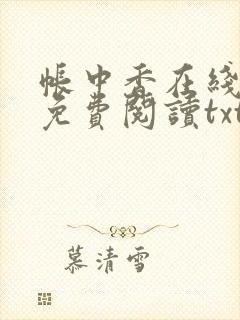 帳中香在綫
免費閱讀txt
慕清雪